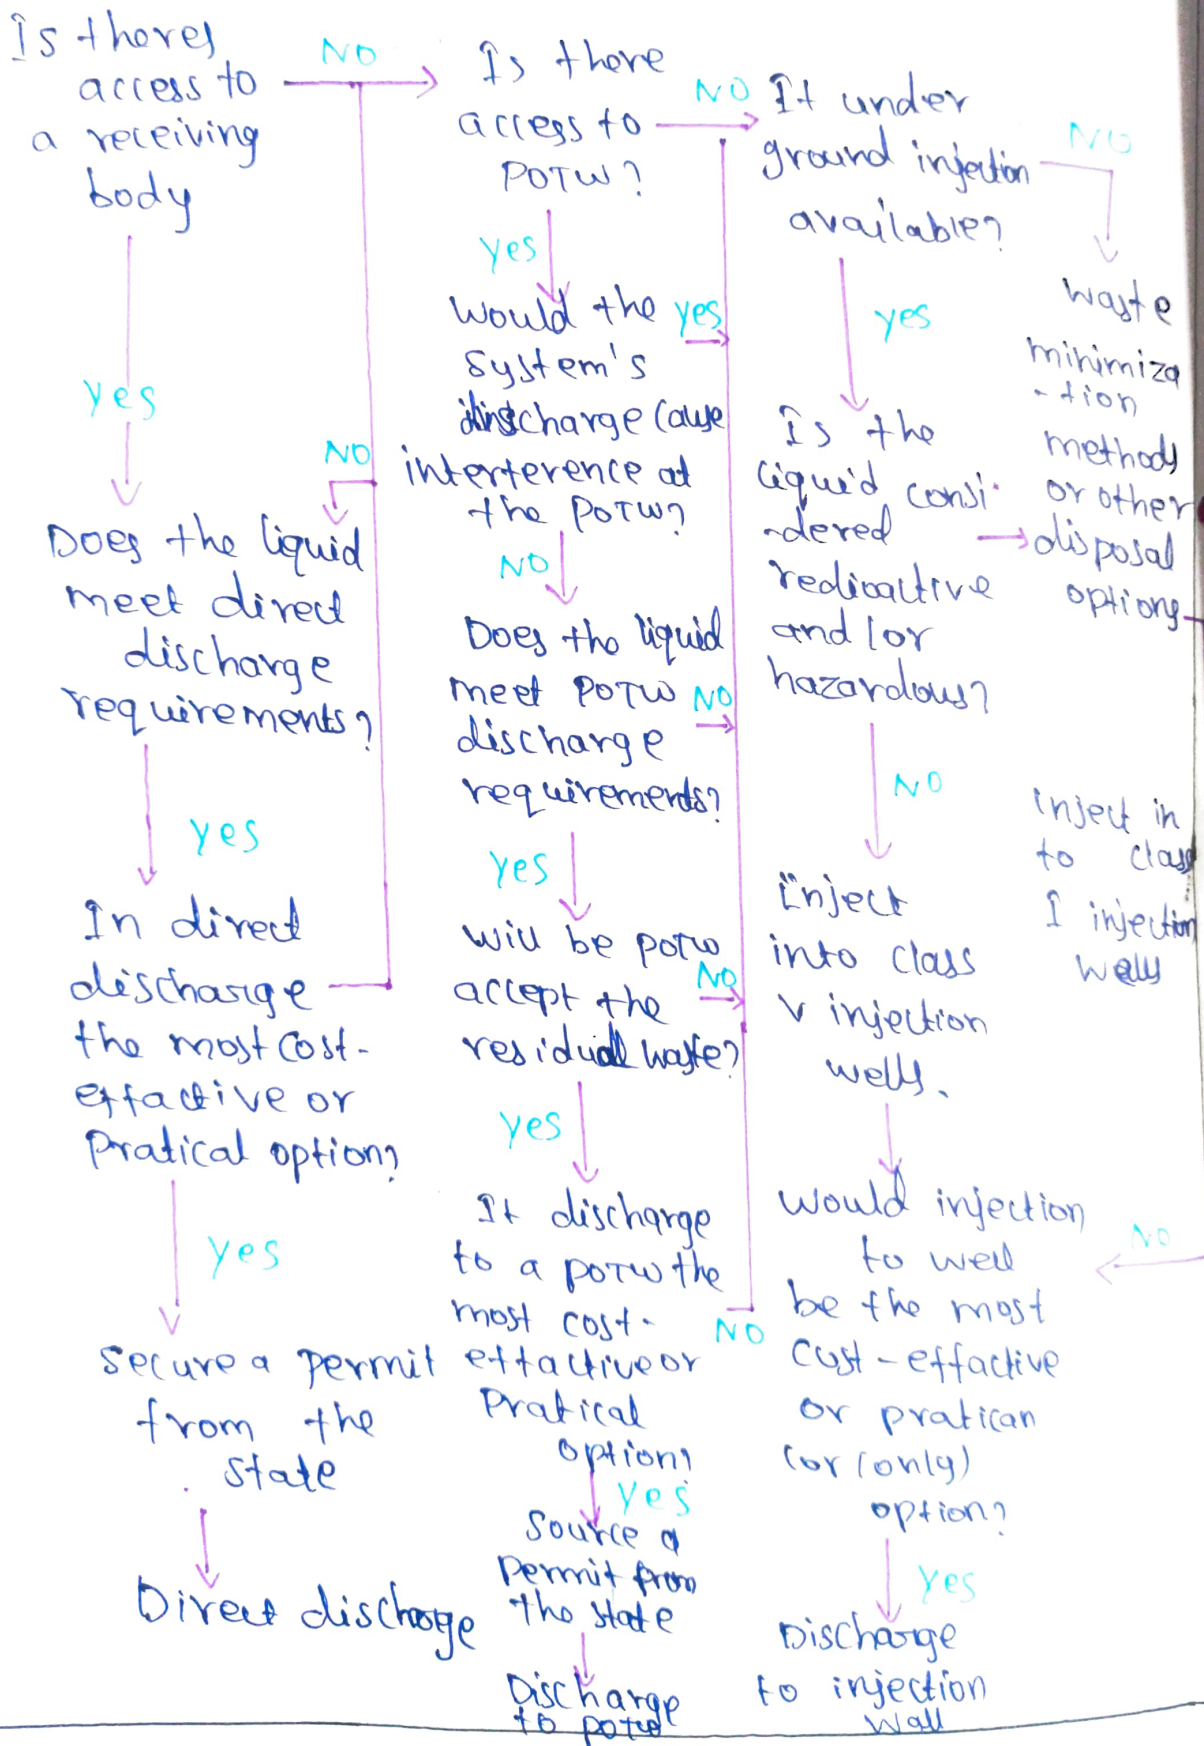 Is theres
access to
a receiving
body
NO
yes
Does the liquid
meet direct
discharge
requirements?
NO
yes
In direct
discharge
the most cost-
effactive or
Pratical option?
yes
secure a permit
from the
state
Direct discharge
Is there
access to
POTW?
NO
yes
would the
system's
discharge cause
interference at
the POTW?
yes
NO
Does the liquid
meet POTW
discharge
requirements?
NO
yes
will be potw
accept the
residual waste?
NO
yes
It discharge
to a POTW the
most cost-
effactive or
Pratical
option?
NO
yes
Source a
permit from
the state
Discharge
to potw
It under
ground injection
available?
NO
yes
Is the
liquid consi-
-dered
redioactive
and/or
hazardous?
NO
Enject
into class
V injection
wells.
would injection
to well
be the most
cust-effective
or pratican
(or (only)
option?
NO
yes
Discharge
to injection
wall
waste
minimiza
-tion
methods
or other
disposal
options
inject in
to class
I injection
wells